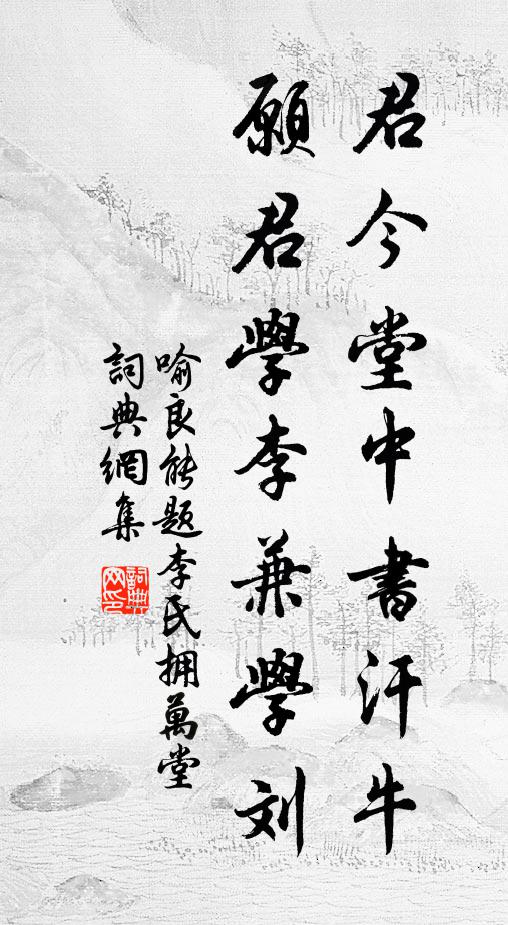 君今堂中書汗牛
願君學李兼學刘
喻良能題李氏拥萬堂
詞典網集
詞典网印